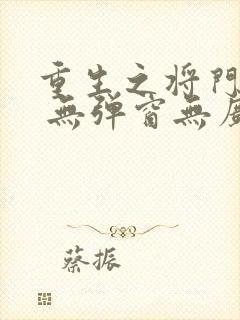 重生之将門
無弹窗無
蔡振